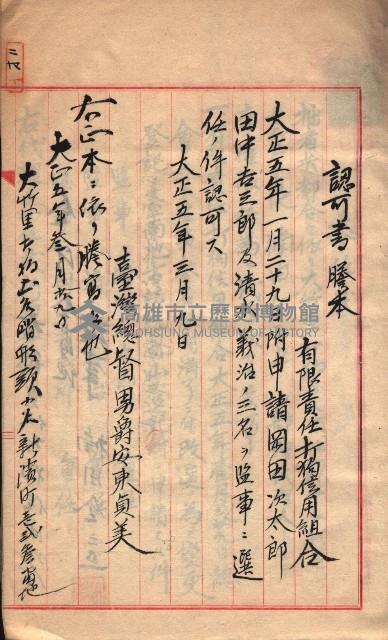 認可書謄本
有限責任打狗信用組合
大正五年一月二十九日附申請岡田次太郎
田中吉三郎及清水義治ノ三名ヲ監事ニ選
任ノ件認可ス
大正五年三月九日
臺灣總督男爵安東貞美
右正本ニ依リ謄寫候也
大正五年参月
大竹里
新濱町
高雄市立歷史博物館
KAOHSIUNG MUSEUM OF HISTORY